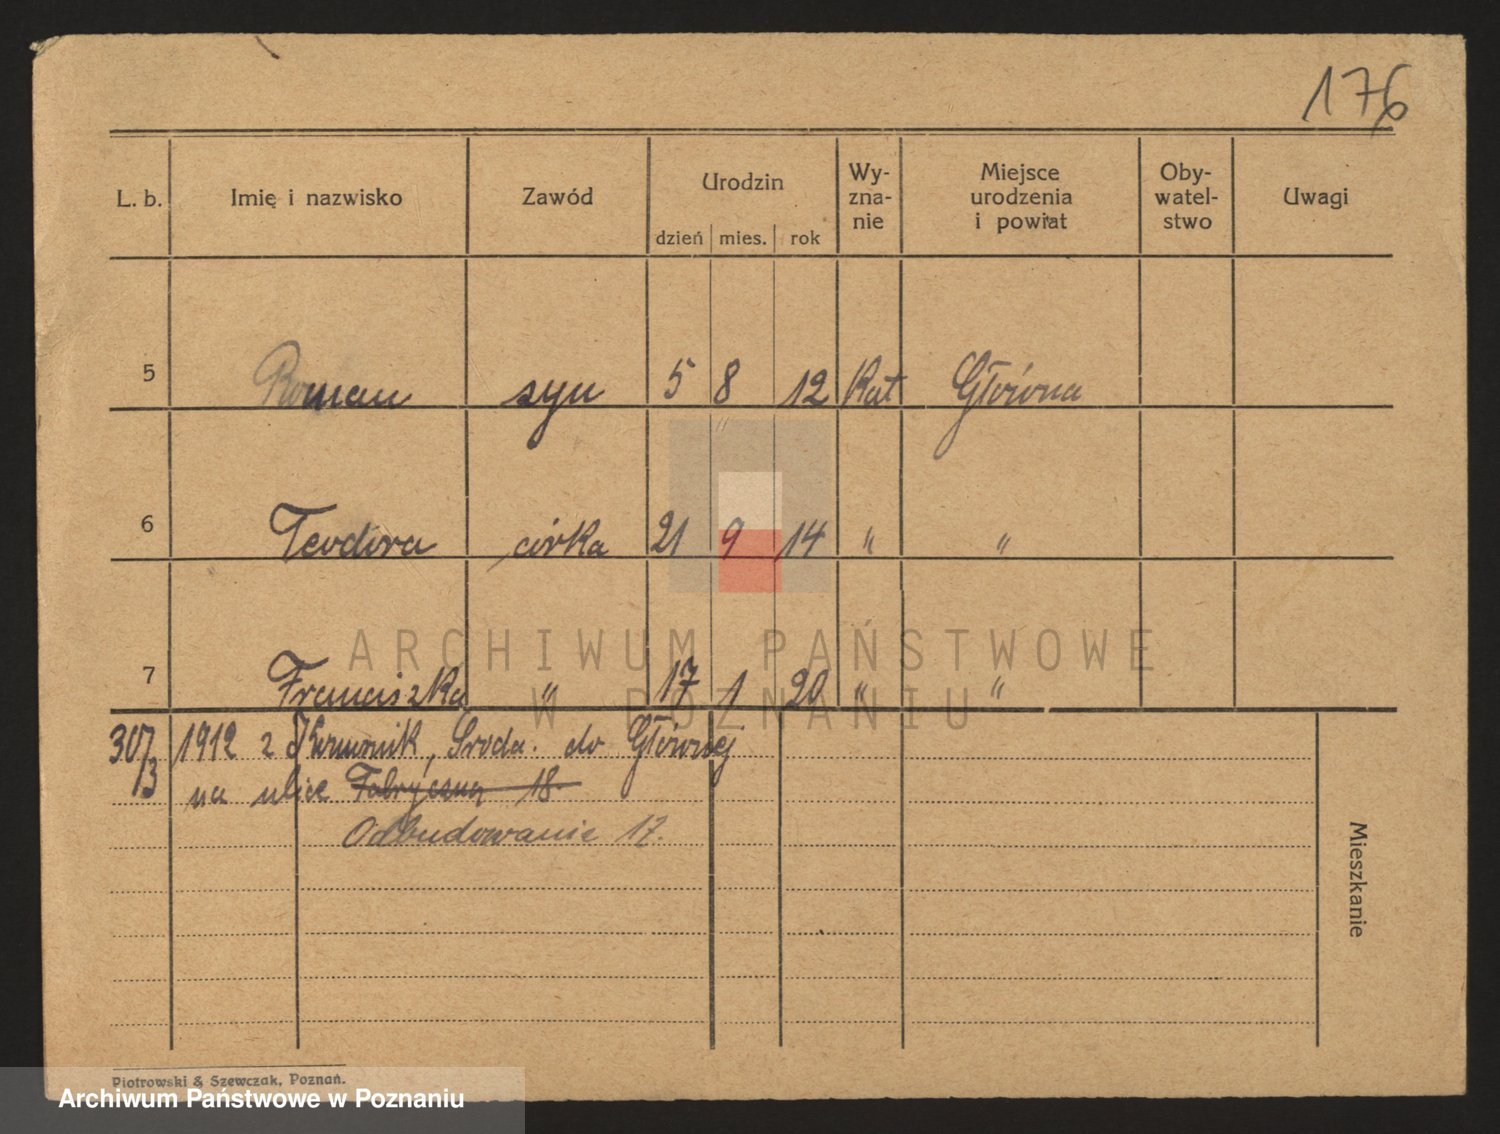 176
L. b. Imię i nazwisko Zawód Urodzin Wy-zna-nie Miejsce urodzenia i powiat Oby-watel-stwo Uwagi
dzień mies. rok
5 Roman syn 5 8 12 Kat Główna
6 Teodora córka 21 9 14 " "
7 Franciszka " 17 1 20 " "
ARCHIWUM PAŃSTWOWE
W POZNANIU
30/3 1912 z Komornik, Sroda. do Głównej
na ulice Fabryczna 18.
Odbudowanie 17.
Mieszkanie
Piotrowski & Szewczak, Poznań.
Archiwum Państwowe w Poznaniu